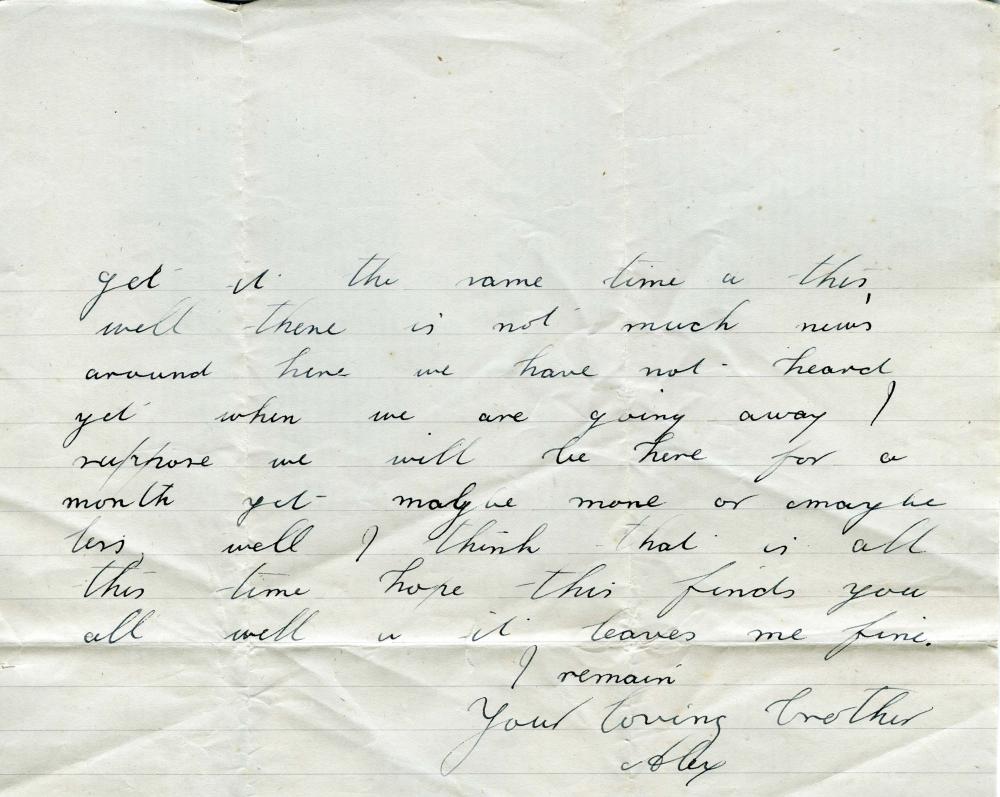 get it the same time as this
well there is not much news
around here we have not heard
yet when we are going away I
suppose we will be here for a
month yet maybe more or maybe
less, well I think that is all
this time hope this finds you
all well as it leaves me fine.
I remain
Your loving brother
Alex